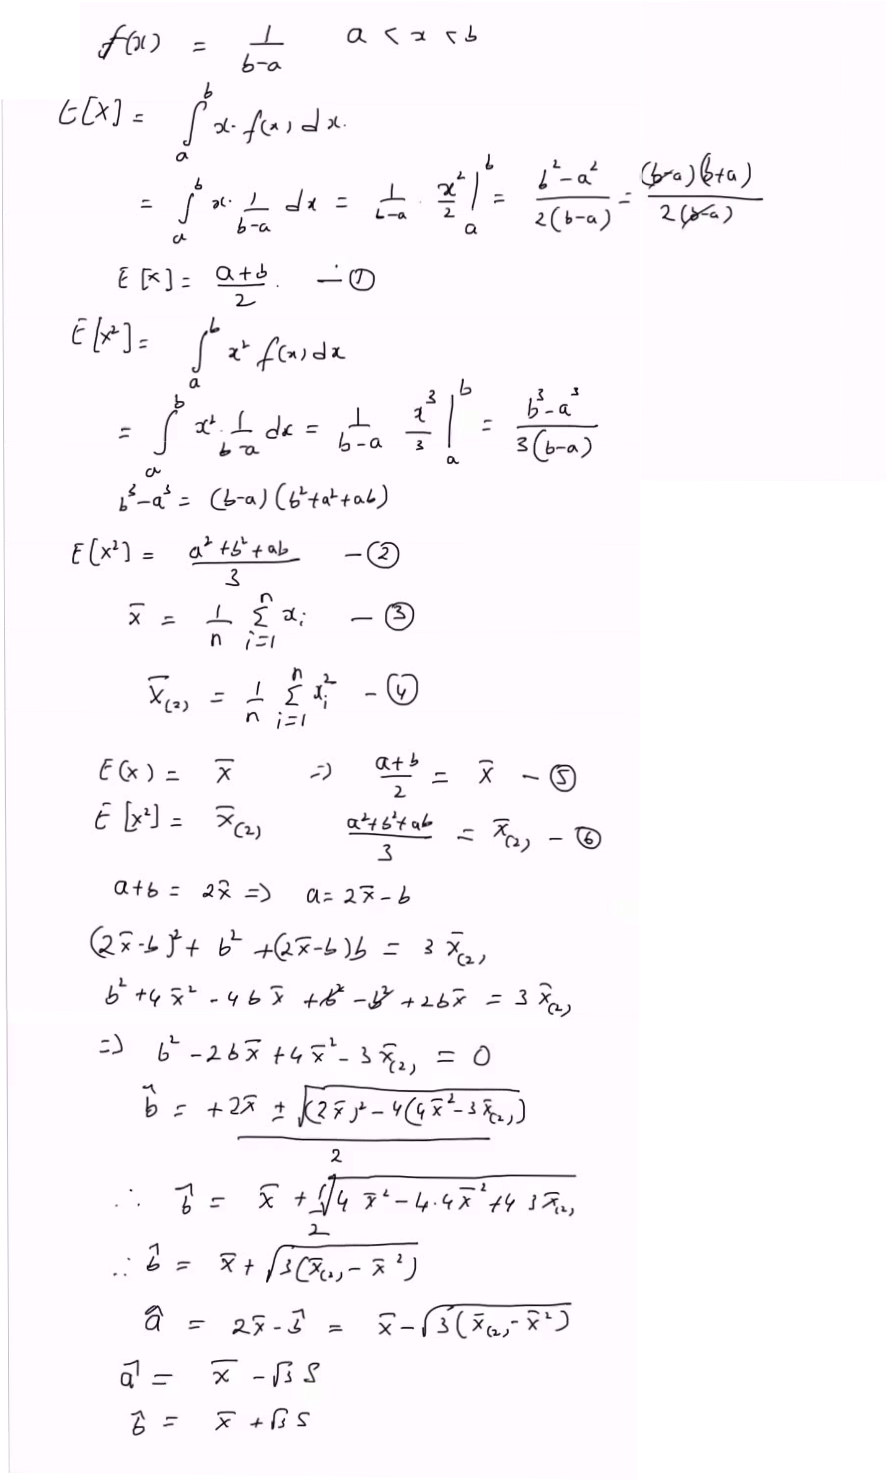 f(x) = 1/(b-a)    a < x < b
E[X] = ∫_a^b x. f(x) dx.
= ∫_a^b x. 1/(b-a) dx = 1/(b-a) . x²/2 |_a^b = (b²-a²)/(2(b-a)) = ((b-a)(b+a))/(2(b-a))
E[x] = (a+b)/2 . — ①
E[x²] = ∫_a^b x² f(x) dx
= ∫_a^b x². 1/(b-a) dx = 1/(b-a) x³/3 |_a^b = (b³-a³)/(3(b-a))
b³-a³ = (b-a)(b²+a²+ab)
E[x²] = (a²+b²+ab)/3 — ②
x̄ = 1/n Σ_{i=1}^n x_i — ③
x̄_(2) = 1/n Σ_{i=1}^n x_i² — ④
E(x) = x̄ => (a+b)/2 = x̄ — ⑤
E[x²] = x̄_(2)    (a²+b²+ab)/3 = x̄_(2) — ⑥
a+b = 2x̄ => a = 2x̄-b
(2x̄-b)² + b² + (2x̄-b)b = 3 x̄_(2)
b² + 4x̄² - 4bx̄ + b² - b² + 2bx̄ = 3 x̄_(2)
=> b² - 2bx̄ + 4x̄² - 3x̄_(2) = 0
b̂ = (+2x̄ ± √((2x̄)² - 4(4x̄²-3x̄_(2))))/2
∴ b̂ = x̄ + √(4x̄² - 4.4x̄² + 4 3x̄_(2))/2
∴ b̂ = x̄ + √(3(x̄_(2) - x̄²))
â = 2x̄ - b̂ = x̄ - √(3(x̄_(2) - x̄²))
â = x̄ - √3 S
b̂ = x̄ + √3 S